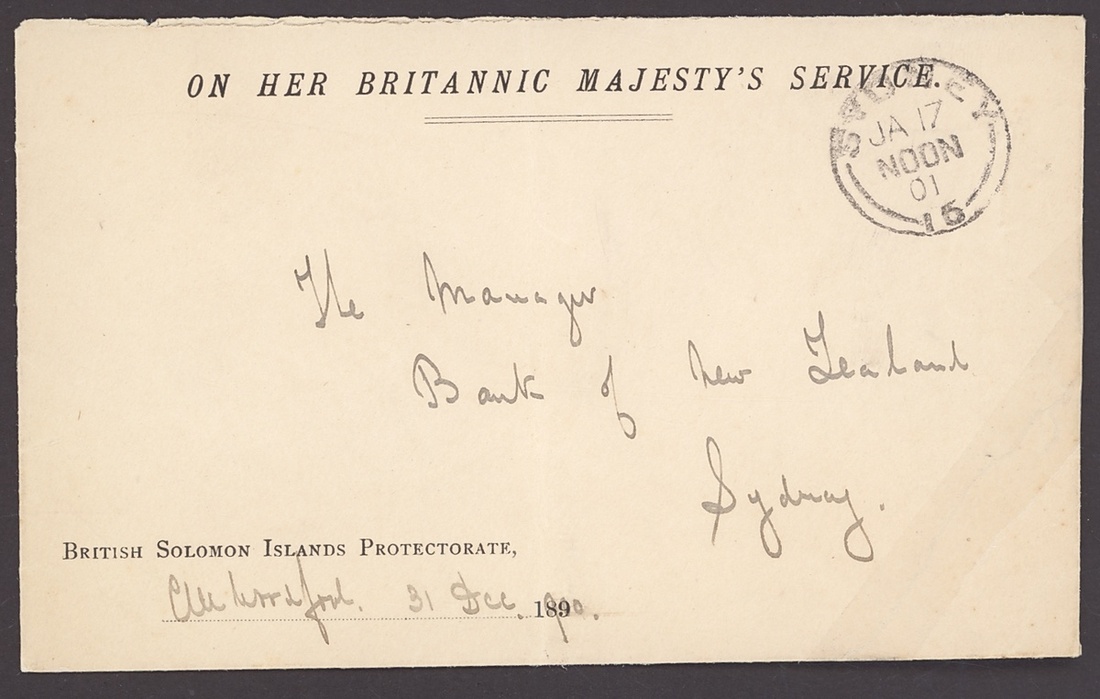 ON HER BRITANNIC MAJESTY'S SERVICE.
SYDNEY
JA 17
NOON
01
15
The Manager
Bank of New Zealand
Sydney.
BRITISH SOLOMON ISLANDS PROTECTORATE,
CMWoodford. 31 Dec. 1899 900.